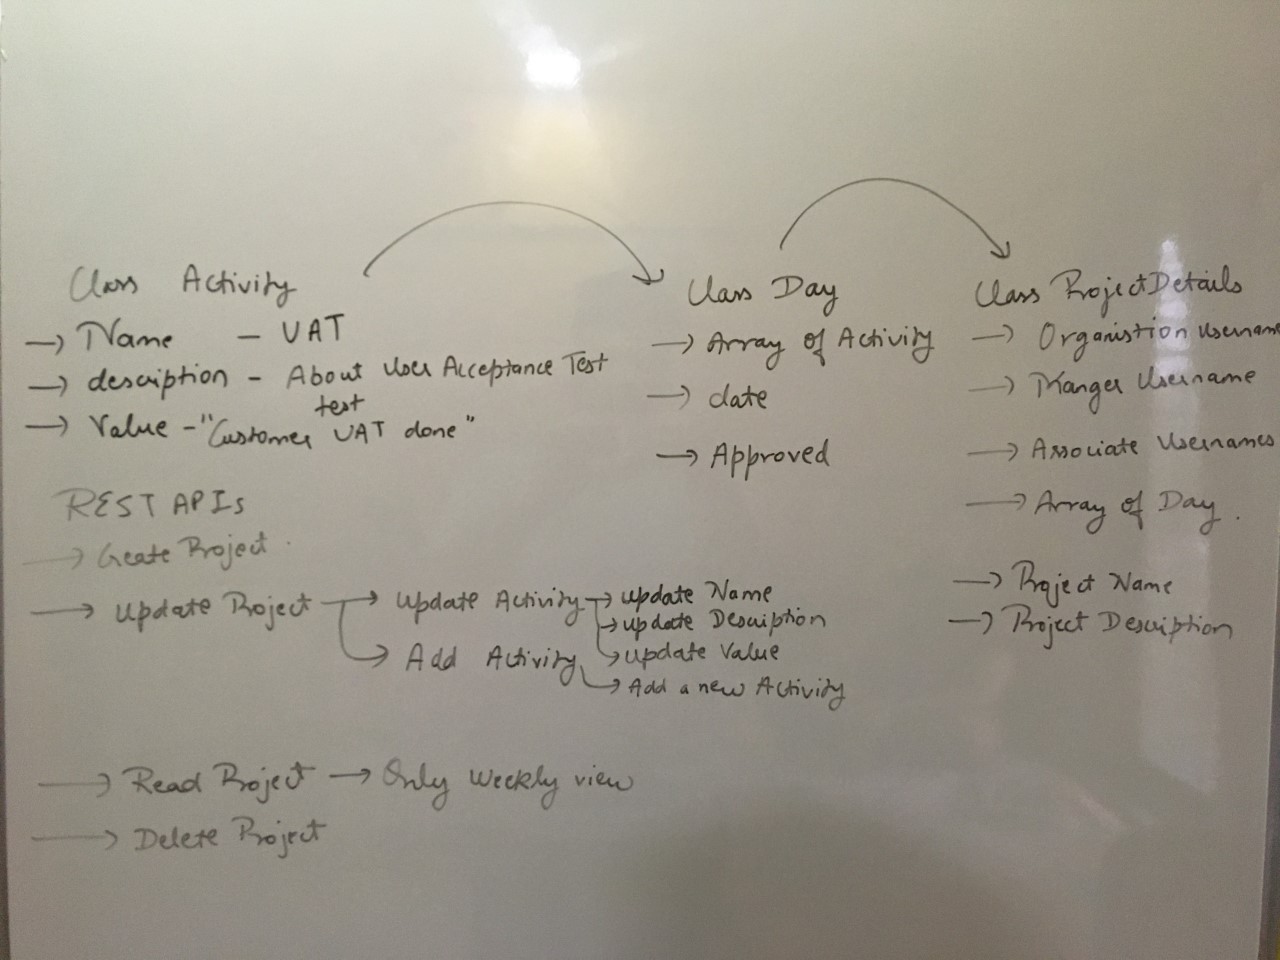 Class Activity
→ Name - UAT
→ description - About User Acceptance Test
test
→ Value - "Customer UAT done"
Class Day
→ Array of Activity
→ date
→ Approved
Class ProjectDetails
→ Organistion Username
→ Manger Username
→ Associate Usernames
→ Array of Day.
→ Project Name
→ Project Description
REST APIs
→ Create Project.
→ Update Project → Update Activity → update Name
→ update Description
→ update Value
→ Add Activity → Add a new Activity
→ Read Project → Only Weekly view
→ Delete Project